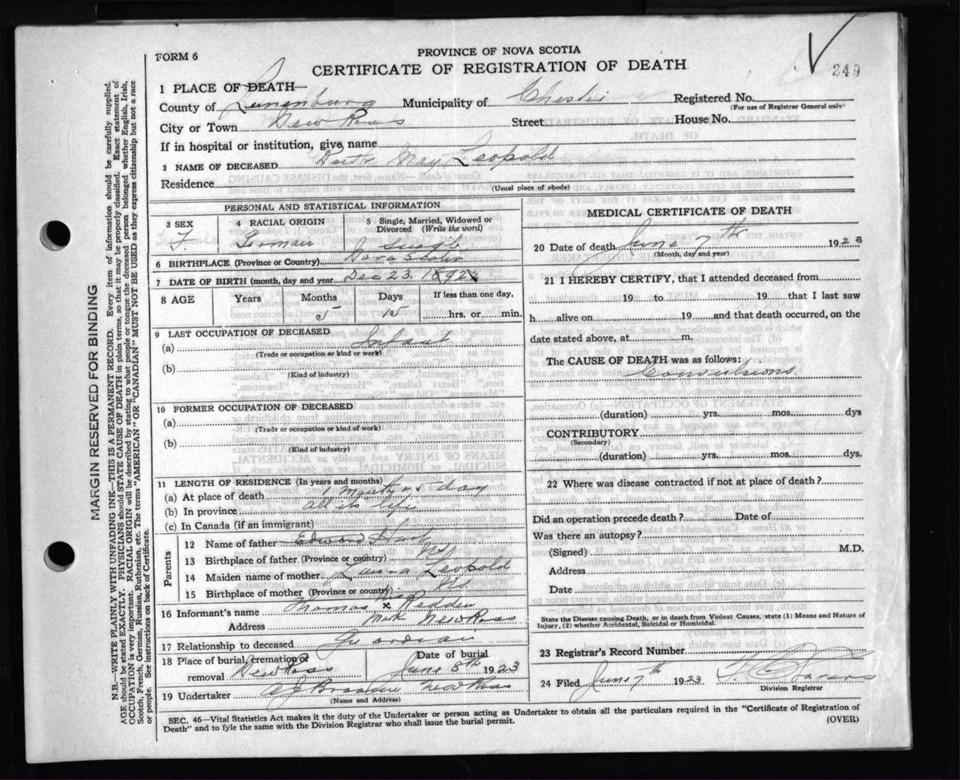 249
FORM 6
PROVINCE OF NOVA SCOTIA
CERTIFICATE OF REGISTRATION OF DEATH
1 PLACE OF DEATH—
County of Lunenburg Municipality of Chester Registered No.
(For use of Registrar General only)
City or Town New Ross Street House No.
If in hospital or institution, give name
2 NAME OF DECEASED May Leopold
Residence
(Usual place of abode)
PERSONAL AND STATISTICAL INFORMATION
3 SEX F 4 RACIAL ORIGIN German 5 Single, Married, Widowed or Divorced (Write the word) Single
6 BIRTHPLACE (Province or Country) Nova Scotia
7 DATE OF BIRTH (month, day and year) Dec 23. 192
8 AGE Years Months 5 Days 15 If less than one day, hrs. or min.
9 LAST OCCUPATION OF DECEASED
(a) Infant
(Trade or occupation or kind or work)
(b)
(Kind of industry)
10 FORMER OCCUPATION OF DECEASED
(a)
(Trade or occupation or kind or work)
(b)
(Kind of industry)
11 LENGTH OF RESIDENCE (In years and months)
(a) At place of death 1 Month day
(b) In province all its life
(c) In Canada (if an immigrant)
Parents
12 Name of father Edward
13 Birthplace of father (Province or country) NS
14 Maiden name of mother Laura Leopold
15 Birthplace of mother (Province or country) NS
16 Informant's name Thomas x Redden
Address mark New Ross
17 Relationship to deceased Guardian
18 Place of burial, cremation or removal New Ross Date of burial June 8th 1923
19 Undertaker New Ross
(Name and Address)
MEDICAL CERTIFICATE OF DEATH
20 Date of death June 7th 192
(Month, day and year)
21 I HEREBY CERTIFY, that I attended deceased from
19 to 19 that I last saw
h alive on 19 and that death occurred, on the
date stated above, at m.
The CAUSE OF DEATH was as follows:
Convulsions
(duration) yrs. mos. dys
CONTRIBUTORY
(Secondary)
(duration) yrs. mos. dys.
22 Where was disease contracted if not at place of death?
Did an operation precede death? Date of
Was there an autopsy?
(Signed) M.D.
Address
Date
State the Disease causing Death, or in death from Violent Causes, state (1) Means and Nature of Injury, (2) whether Accidental, Suicidal or Homicidal.
23 Registrar's Record Number
24 Filed June 7th 1923
Division Registrar
SEC. 46—Vital Statistics Act makes it the duty of the Undertaker or person acting as Undertaker to obtain all the particulars required in the "Certificate of Registration of
Death" and to fyle the same with the Division Registrar who shall issue the burial permit.
(OVER)
MARGIN RESERVED FOR BINDING
N.B.—WRITE PLAINLY WITH UNFADING INK—THIS IS A PERMANENT RECORD. Every item of information should be carefully supplied.
AGE should be stated EXACTLY. PHYSICIANS should STATE CAUSE OF DEATH in plain terms, so that it may be properly classified. Exact statement of
OCCUPATION is very important. RACIAL ORIGIN will be described by stating to what people or tongue the deceased person belonged whether English, Irish,
Scotch, French, German, Russian, Ruthenian, etc. The terms "AMERICAN" OR "CANADIAN" MUST NOT BE USED as they express citizenship but not a race
or people. See instructions on back of Certificate.